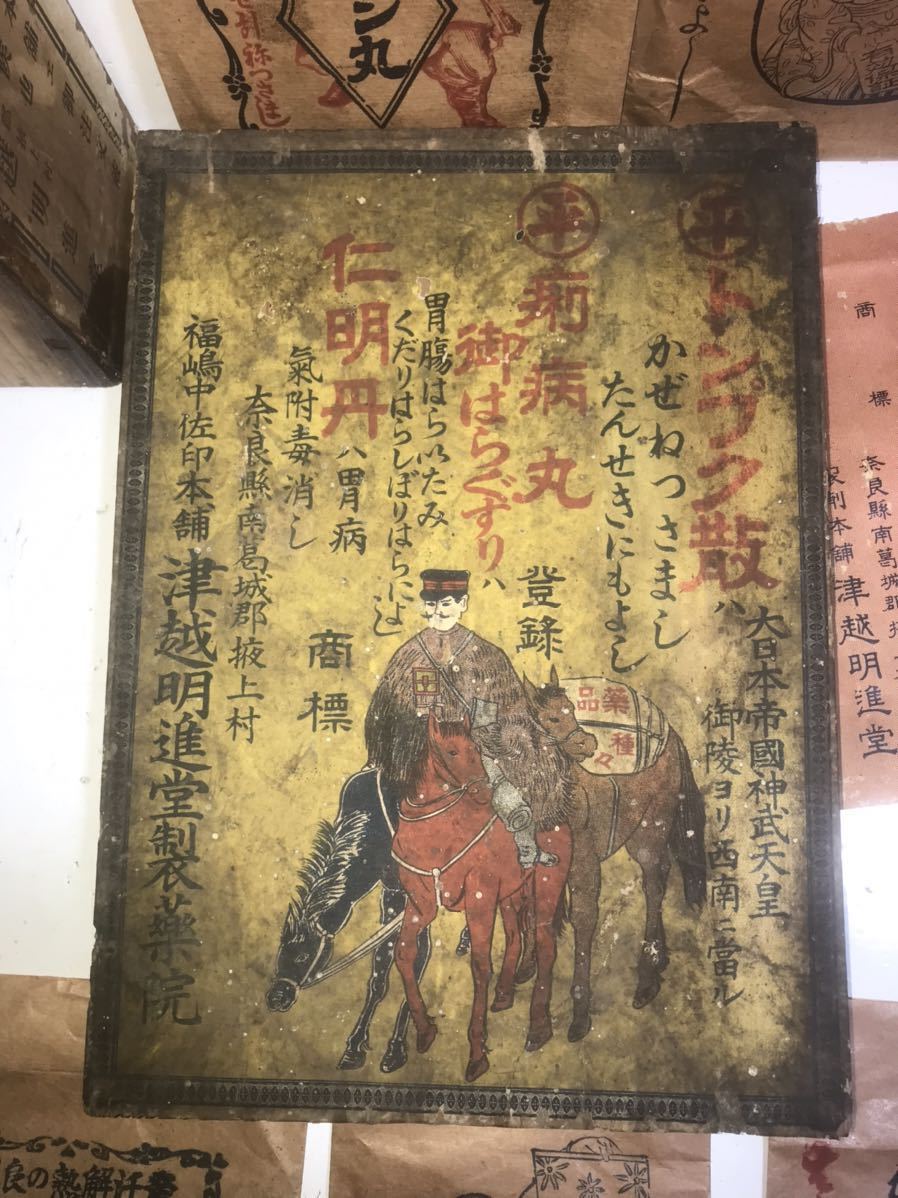 ㊥トンプク散ハ
かぜねつさまし
たんせきにもよし
㊥痢病丸
御はらぐすりハ
胃腸はらいたみ
くだりはらしぼりはらによし
仁明丹ハ胃病
氣附毒消し
大日本帝國神武天皇
御陵ヨリ西南ニ當ル
登錄
商標
奈良縣南葛城郡掖上村
福嶋中佐印本舗 津越明進堂製薬院
藥品
種々
商標
奈良縣南葛城郡
本舗 津越明進堂
ン丸
良の熱解汗